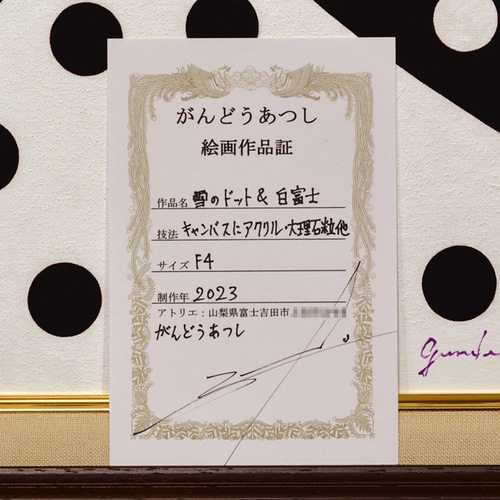 がんどうあつし
絵画作品証
作品名 雪のドット& 白富士
技法 キャンバスにアクリル・大理石粒他
サイズ F4
制作年 2023
アトリエ:山梨県富士吉田市
がんどうあつし